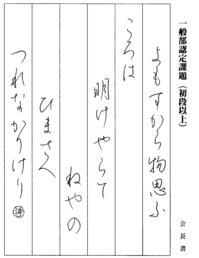 一般部認定課題(初段以上)
会長書
よもすから物思ふ
ころは
明けやらて
ねやの
ひまさへ
つれなかりけり